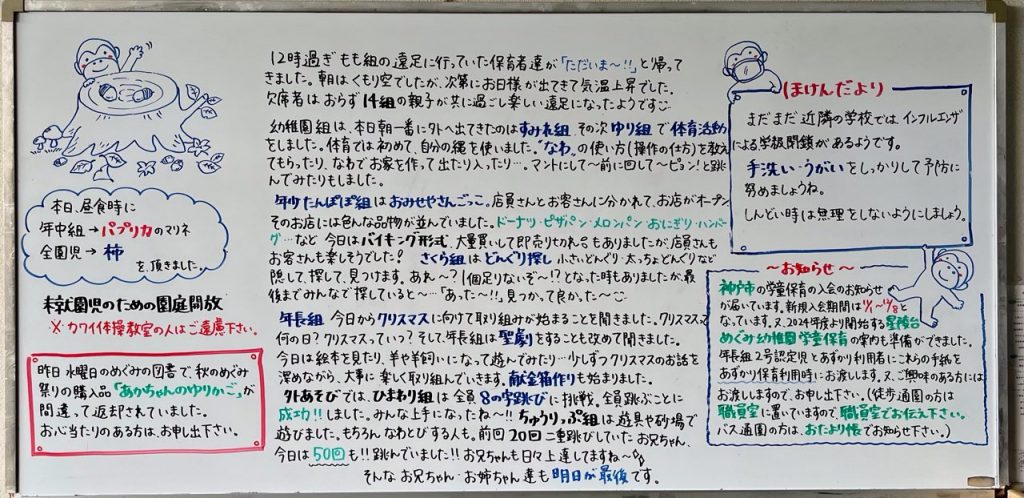 本日、昼食時に
年中組→パプリカのマリネ
全園児→柿
を、頂きました。
未就園児のための園庭開放
※カワイ体操教室の人はご遠慮下さい。
昨日 水曜日のめぐみの図書で、秋のめぐみ
祭りの購入品「あかちゃんのゆりかご」が
間違って返却されていました。
お心当たりのある方は、お申し出下さい。
12時過ぎ もも組の遠足に行っていた保育者達が「ただいま〜!!」と帰って
きました。朝はくもり空でしたが、次第にお日様が出てきて気温上昇でした。
欠席者はおらず14組の親子が共に過ごし楽しい遠足になったようです
幼稚園組は、本日朝一番に外へ出てきたのはすみれ組、その次ゆり組で体育活動
をしました。体育では初めて、自分の縄を使いました。"なわ"の使い方(操作の仕方)を教え
てもらったり、なわでお家を作って出たり入ったり…。マントにして〜前に回して〜ピョン!と跳
んでみたりもしました。
年少たんぽぽ組はおみせやさんごっこ。店員さんとお客さんに分かれて、お店がオープン
そのお店には色んな品物が並んでいました。ドーナツ・ピザパン・メロンパン・おにぎり・ハンバー
グ…など 今日はバイキング形式、大量買いして即売り切れ品もありましたが、店員さんも
お客さんも楽しそうでした! さくら組はどんぐり探し 小さいどんぐり・太っちょどんぐりなど
隠して、探して、見つけます。あれ〜?1個足りないぞ〜!?となった時もありましたが、最
後までみんなで探していると〜「あった〜!!」見つかって良かった〜
年長組 今日からクリスマスに向けて取り組みが始まることを聞きました。クリスマスって
何の日?クリスマスっていつ?そして、年長組は聖劇をすることも改めて聞きました。
今日は絵本を見たり、羊や羊飼いになって遊んでみたり…少しずつクリスマスのお話を
深めながら、大事に楽しく取り組んでいきます。献金箱作りも始まりました。
外あそびでは、ひまわり組は全員8の字跳びに挑戦。全員跳ぶことに
成功!!しました。みんな上手になったね〜!! ちゅうりっぷ組は遊具や砂場で
遊びました。もちろん なわとびする人も。前回20回二重跳びしていたお兄ちゃん、
今日は50回も!!跳んでいました!!お兄ちゃんも日々上達してますね〜
そんなお兄ちゃん・お姉ちゃん達も明日が最後です。
ほけんだより
まだまだ近隣の学校では、インフルエンザ
による学級閉鎖があるようです。
手洗い・うがいをしっかりして予防に
努めましょうね。
しんどい時は無理をしないようにしましょう。
〜お知らせ〜
神戸市の学童保育の入会のお知らせ
が届いています。新規入会期間は11/1〜11/8と
なっています。又、2024年度より開始する星陵台
めぐみ幼稚園学童保育の案内も準備ができました。
年長組2号認定児とあずかり利用者にこれらの手紙を
あずかり保育利用時にお渡します。又、ご興味のある方には
お渡ししますので、お申し出下さい。(徒歩通園の方は
職員室に置いていますので、職員室でお伝え下さい。
バス通園の方は、おたより帳でお知らせ下さい。)